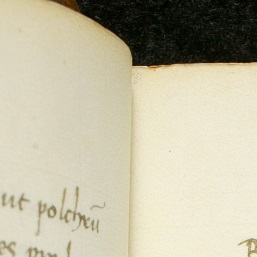 ut polcheū
es
B